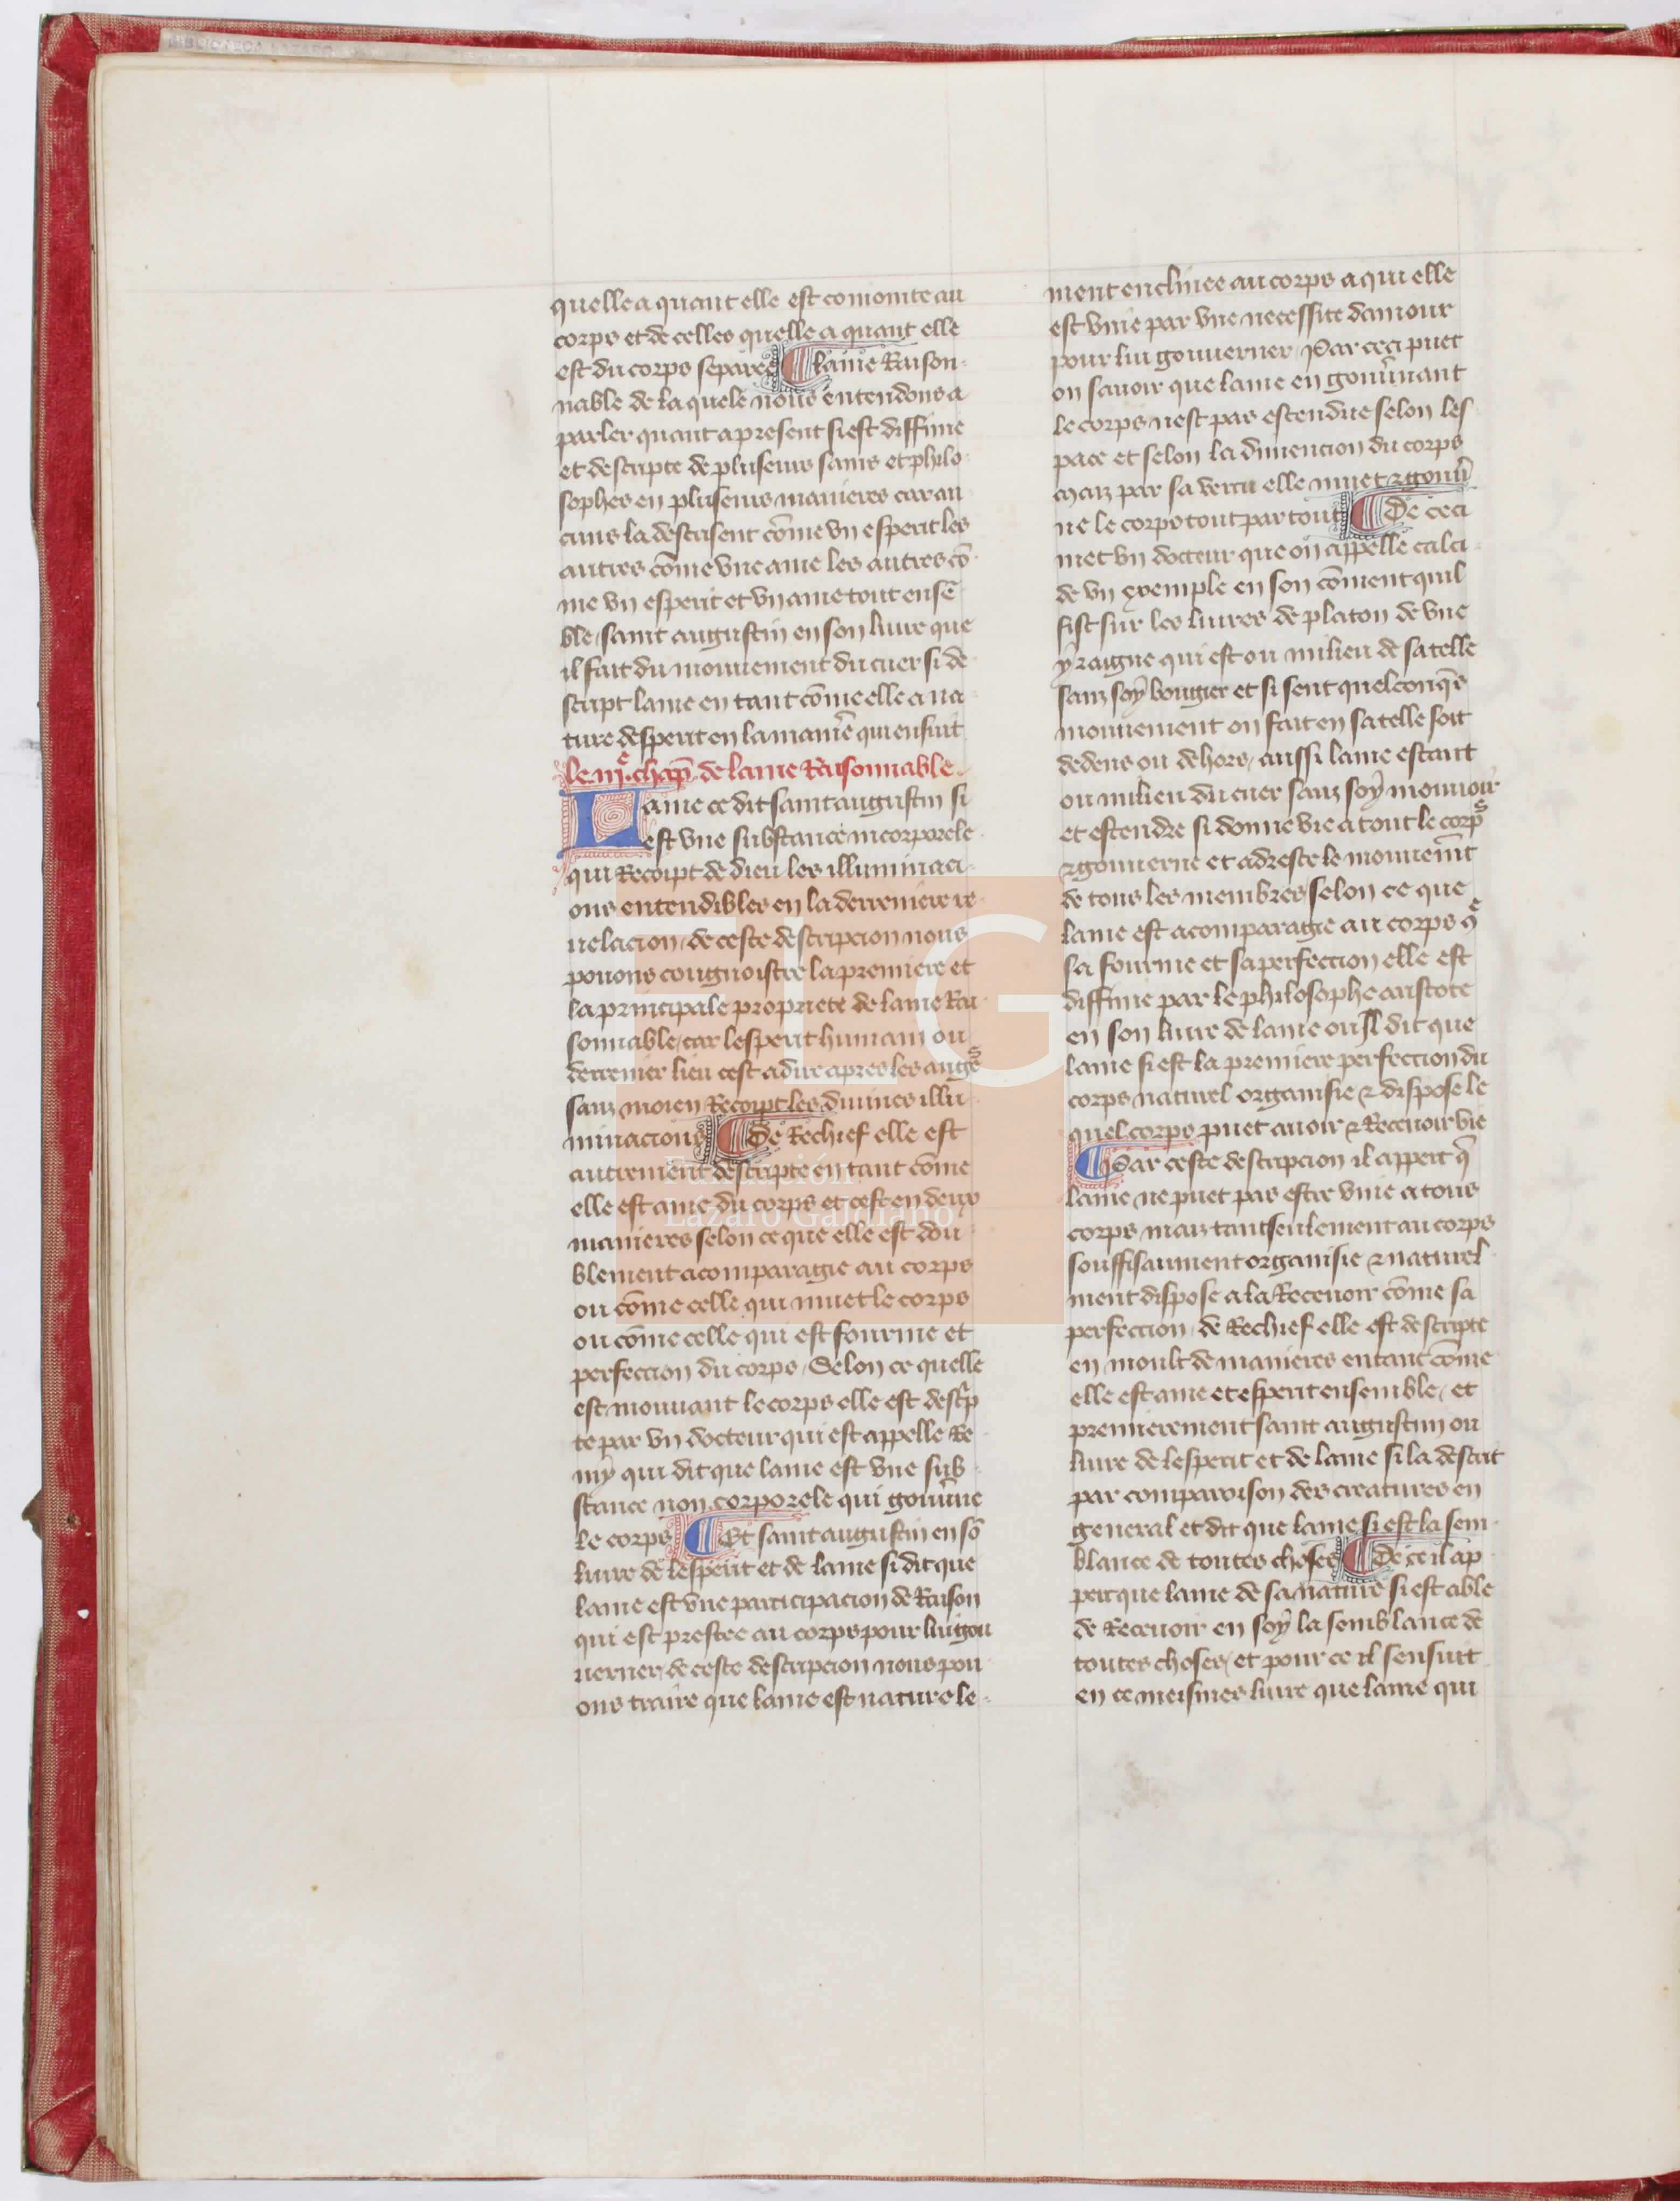 BIBLIOTECA LAZARO
quelle a quant elle est coniointe au
corps et de celles quelle a quant elle
est du corps separee ⸿ lame Raison
nable de la quele nous entendons a
parler quant a present si est diffinie
et descripte de plusieurs sains et philo
sophes en plusieurs manieres car au
cuns la descrisent cōme vn esperit les
autres cōme vne ame les autres cō
me vn esperit et vn ame tout ensē
ble / saint augustin en son liure que
il fait du mouuement du cuer si de
script lame en tant cōme elle a na
ture desperit en la maniē̃ qui ensuit
le iijᵉ. chap̃. de lame Raisonnable.
Lame ce dit saint augustin si
est vne substance incorporele
qui Recoipt de dieu les illuminaci
ons entendibles en la derreniere re
uelacion / de ceste descripcion nous
pouons congnoistre la premiere et
la principale propriete de lame Rai
sonnable / car lesperit humain ou
derrenier lieu cest a dire apres les angᵉˢ
sanz moien Recoipt les diuines illu
minacions ⸿ De Rechief elle est
autrement descripte en tant cōme
elle est ame du corps et cest en deux
manieres selon ce que elle est dou
blement acomparagie au corps
ou cōme celle qui muet le corps
ou cōme celle qui est fourme et
perfeccion du corps / Selon ce quelle
est mouuant le corps elle est desc̃p
te par vn docteur qui est appelle Re
mẏ qui dit que lame est vne sub
stance non corporele qui gouũne
le corps ⸿ Et saint augustin en sō
liure de lesperit et de lame si dit que
lame est vne participacion de Raison
qui est prestee au corps pour lui gou
uerner / de ceste descripcion nous pou
ons traire que lame est naturele
ment enclinee au corps a qui elle
est vnie par vne necessite damour
pour lui gouuerner / Par ceci puet
on sauoir que lame en gouũnant
le corps nest pas estendue selon les
pace et selon la dimencion du corps
maiz par sa vertu elle muet ⁊ gouũ
ne le corps tout par tout ⸿ De ceci
met vn docteur que on appelle calci
de vn exemple en son cōment quil
fist sur les liures de platon de vne
ẏraigne qui est ou milieu de sa telle
sanz soẏ bougier et si sent quelconq̃s
mouuement on fait en sa telle soit
dedens ou dehors / aussi lame estant
ou milieu du cuer sanz soẏ mouuoir
et estendre si donne vie a tout le corpˢ
⁊ gouuerne et adresce le mouuem̃t
de tous les membres / selon ce que
lame est acomparagie au corps qᵉ
sa fourme et sa perfeccion elle est
diffinie par le philosophe aristote
en son liure de lame ou Il dit que
lame si est la premiere perfeccion du
corps naturel organisie ⁊ dispose le
quel corps puet auoir ⁊ Receuoir vie
⸿ Par ceste descripcion il appert q̃
lame ne puet pas estre vnie a tous
corps maiz tant seulement au corps
souffisanment organisie ⁊ naturel
ment dispose a la Receuoir cōme sa
perfeccion / de Rechief elle est descripte
en moult de manieres en tant cōme
elle est ame et esperit ensemble / et
premierement saint augustin ou
liure de lesperit et de lame si la descrit
par comparoison des creatures en
general et dit que lame si est la sem
blance de toutes choses ⸿ De ce il ap
pert que lame de sa nature si est able
de Receuoir en soẏ la semblance de
toutes choses / et pour ce il sensuit
en ce meismes liure que lame qui
LG
Fundación
Lázaro Galdiano